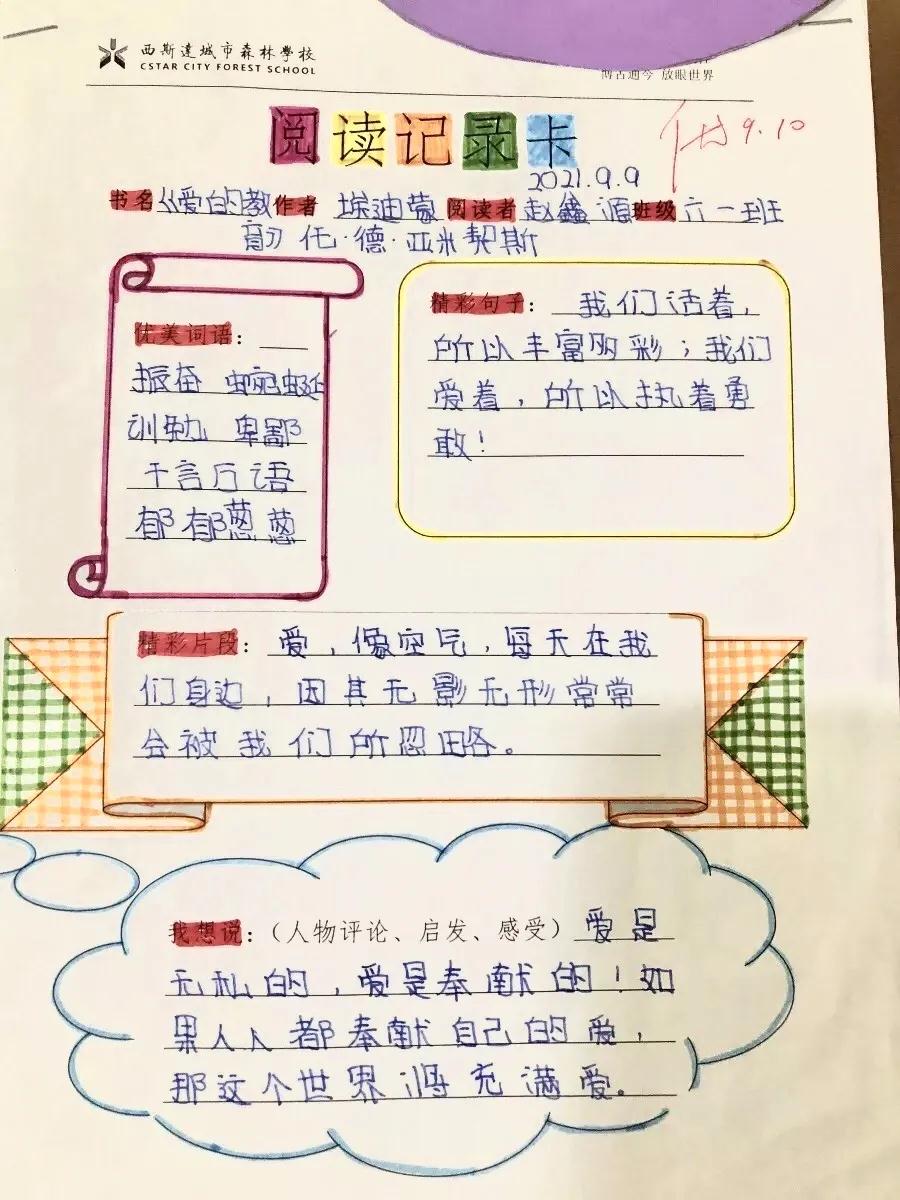 西斯達城市森林學校
CSTAR CITY FOREST SCHOOL
博古通今 放眼世界
阅读记录卡
9.10
2021.9.9
书名《爱的教 作者 埃迪蒙 阅读者 赵鑫源 班级 六一班
育》 托·德·亚米契斯
优美词语：
振奋 蜿蜒
训勉 卑鄙
千言万语
郁郁葱葱
精彩句子： 我们活着，
所以丰富多彩；我们
爱着，所以执着勇
敢！
精彩片段： 爱，像空气，每天在我
们身边，因其无影无形常常
会被我们所忽略。
我想说：（人物评论、启发、感受） 爱是
无私的，爱是奉献的！如
果人人都奉献自己的爱，
那这个世界将充满爱。